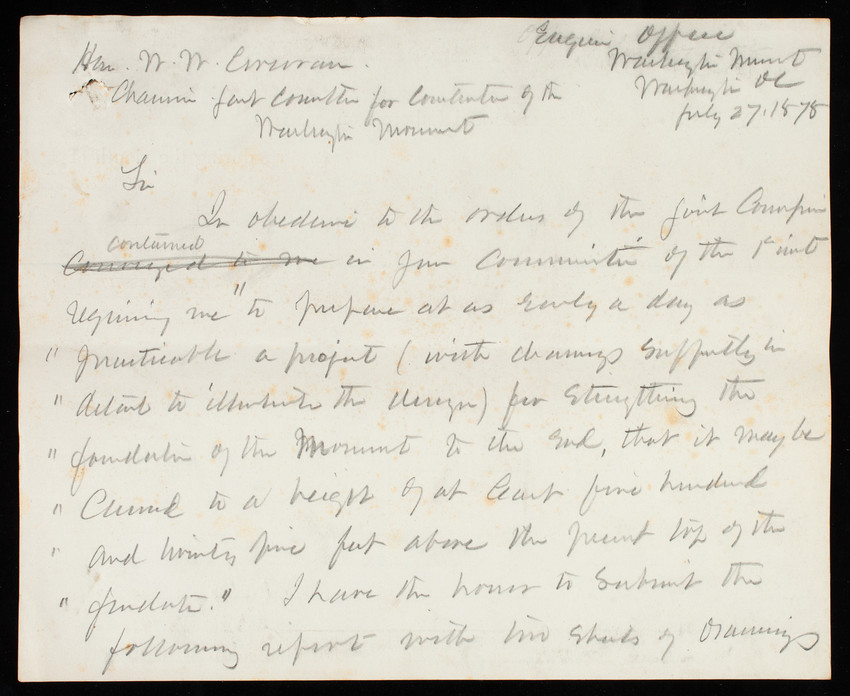 Engineer Office
Washington Monmt
Washington DC
July 27. 1878
Hon. W. W. Corcoran.
Chairman Joint Committee for Construction of the
Washington Monument
Sir
In obedience to the orders of the Joint Commission
contained
Conveyed to me in your Communication of the 1st inst
requiring me "to prepare at as early a day as
" practicable a project (with drawings sufficiently in
" detail to illustrate the design) for strengthening the
" foundation of the Monument to the end, that it may be
" Carried to a height of at least five hundred
" and twenty five feet above the present top of the
" foundation." I have the honor to submit the
following report with two sheets of drawings